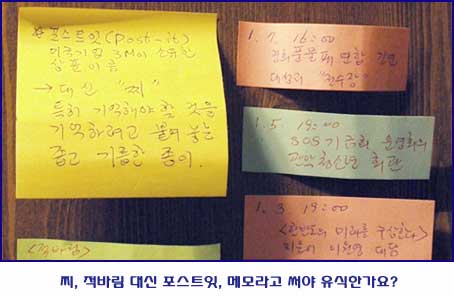 ※ 포스트잇(Post-it)
미국기업 3M이 소유한
상품 이름
→ 대신 "찌"
특히 기억해야 할 것을
기억하려고 붙여 놓는
좁고 기름한 종이.
<적바림>
1. 7. 16:00
풍물패 연합 공연
대성리
1. 5. 19:00
SOS기금회 운영회의
관악청소년 회관
1. 3. 19:00
<한반도의 미래를 구상한다>
대담
찌, 적바림 대신 포스트잇, 메모라고 써야 유식한가요?